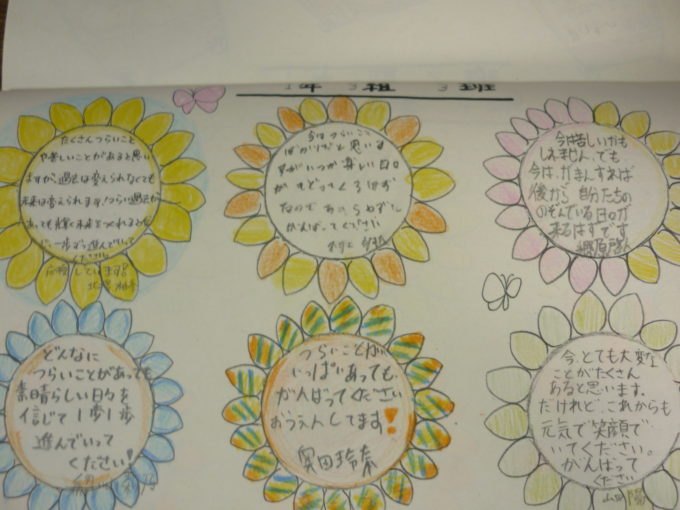 1年 3組 3班
たくさんつらいこと
や苦しいことがあると思い
ますが、過去は変えられなくても
未来は変えられます。つらい過去が
あっても輝く未来をつくれると
進んでいって
ください
応援しています!!
今はつらいこと
ばかりだと思いま
すがいつか楽しい日々
がもどってくるはず
なのであきらめずに
がんばってください
今は苦しいかも
しれません。でも
今は、がまんすれば
後から自分たちの
のぞんでいる日々が
来るはずです
どんなに
つらいことがあっても
素晴らしい日々を
信じて1歩1歩
進んでいって
ください!
つらいことが
いっぱいあっても
がんばってください
おうえんしてます!
奥田玲奈
今、とても大変な
ことがたくさん
あると思います。
だけれど、これからも
元気で笑顔で
いてください。
がんばって
ください